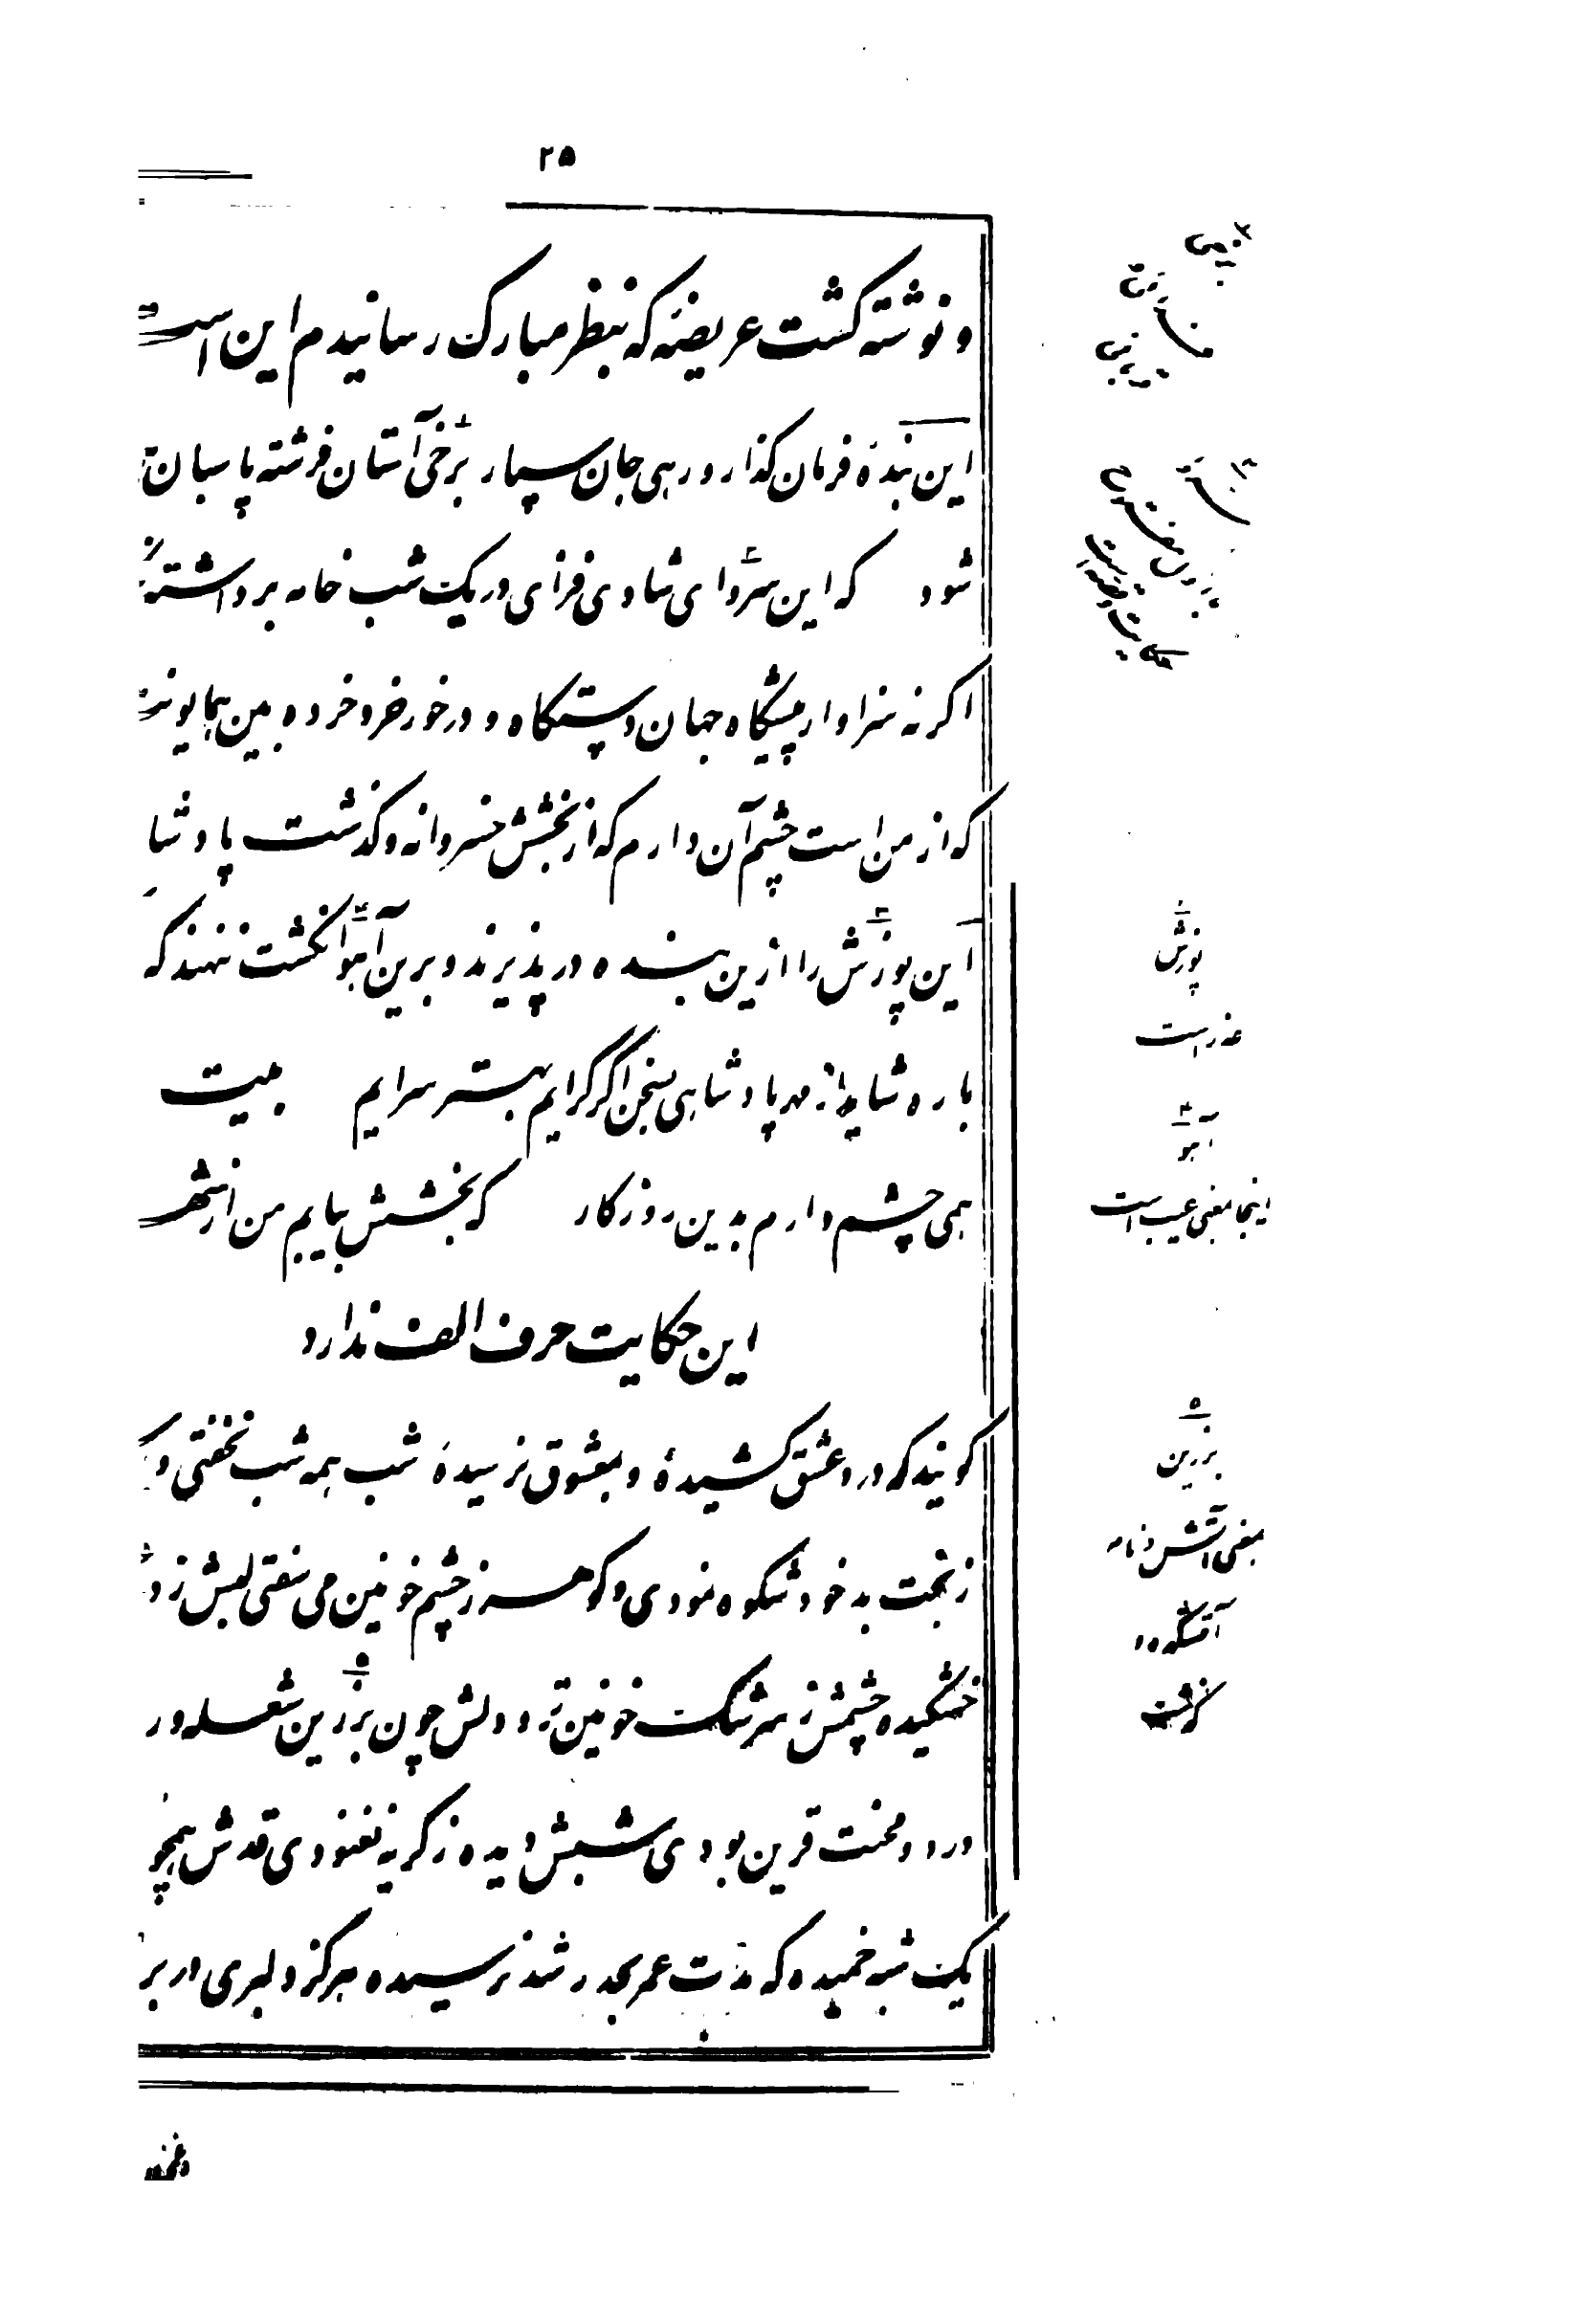 ۲۵
و نوشته گشت عریضهٔ که بنظر مبارک رسانیدم این است
این بندهٔ فرمان گذار و رهی جان سپار برخی آستان فرشته پاسبان
شود که این سروای شادی فزای در یک شب خامه برداشته
اگر نه سزاوار پیشگاه جهان دستگاه و درخور خرده بین همایون
که از من است چشم آن دارم که از بخشش خسروانه و گذشت پادشا
این پوزش را ازین بنده در پذیرند و برین آهو انگشت ننهند که
باره شاید از مهر پادشاهی بسخن اگر گرایم بهتر سرایم بیت
همی چشم دارم بدین روزگار که بخشش بیابم من از شهر
این حکایت حرف الف ندارد
گویند که درد عشق کشیدهٔ و بمعشوق نرسیدهٔ شب همه شب نخفتی و
ز بخت بد خود شکوه نمودی و گوهر ز چشم خونین می سفتی لبش ز
خشکیده چشمش ز سرشک خونین تر و دلش چون برزین شعله ور
درد و محنت قرین بودی شبش دیده ز گریه نغنودی قدش همچو
یک شبه خمیده که مدت عمر بحد رشد نرسیده هرگز دلبری در بر
برخی
پوزش
عذر است
آهو
اینجا بمعنی عیب است
برزین
بمعنی آتش و نام
آتشکده